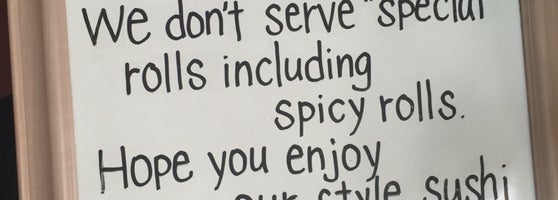 We don't serve "special
rolls including
spicy rolls.
Hope you enjoy
our style sushi